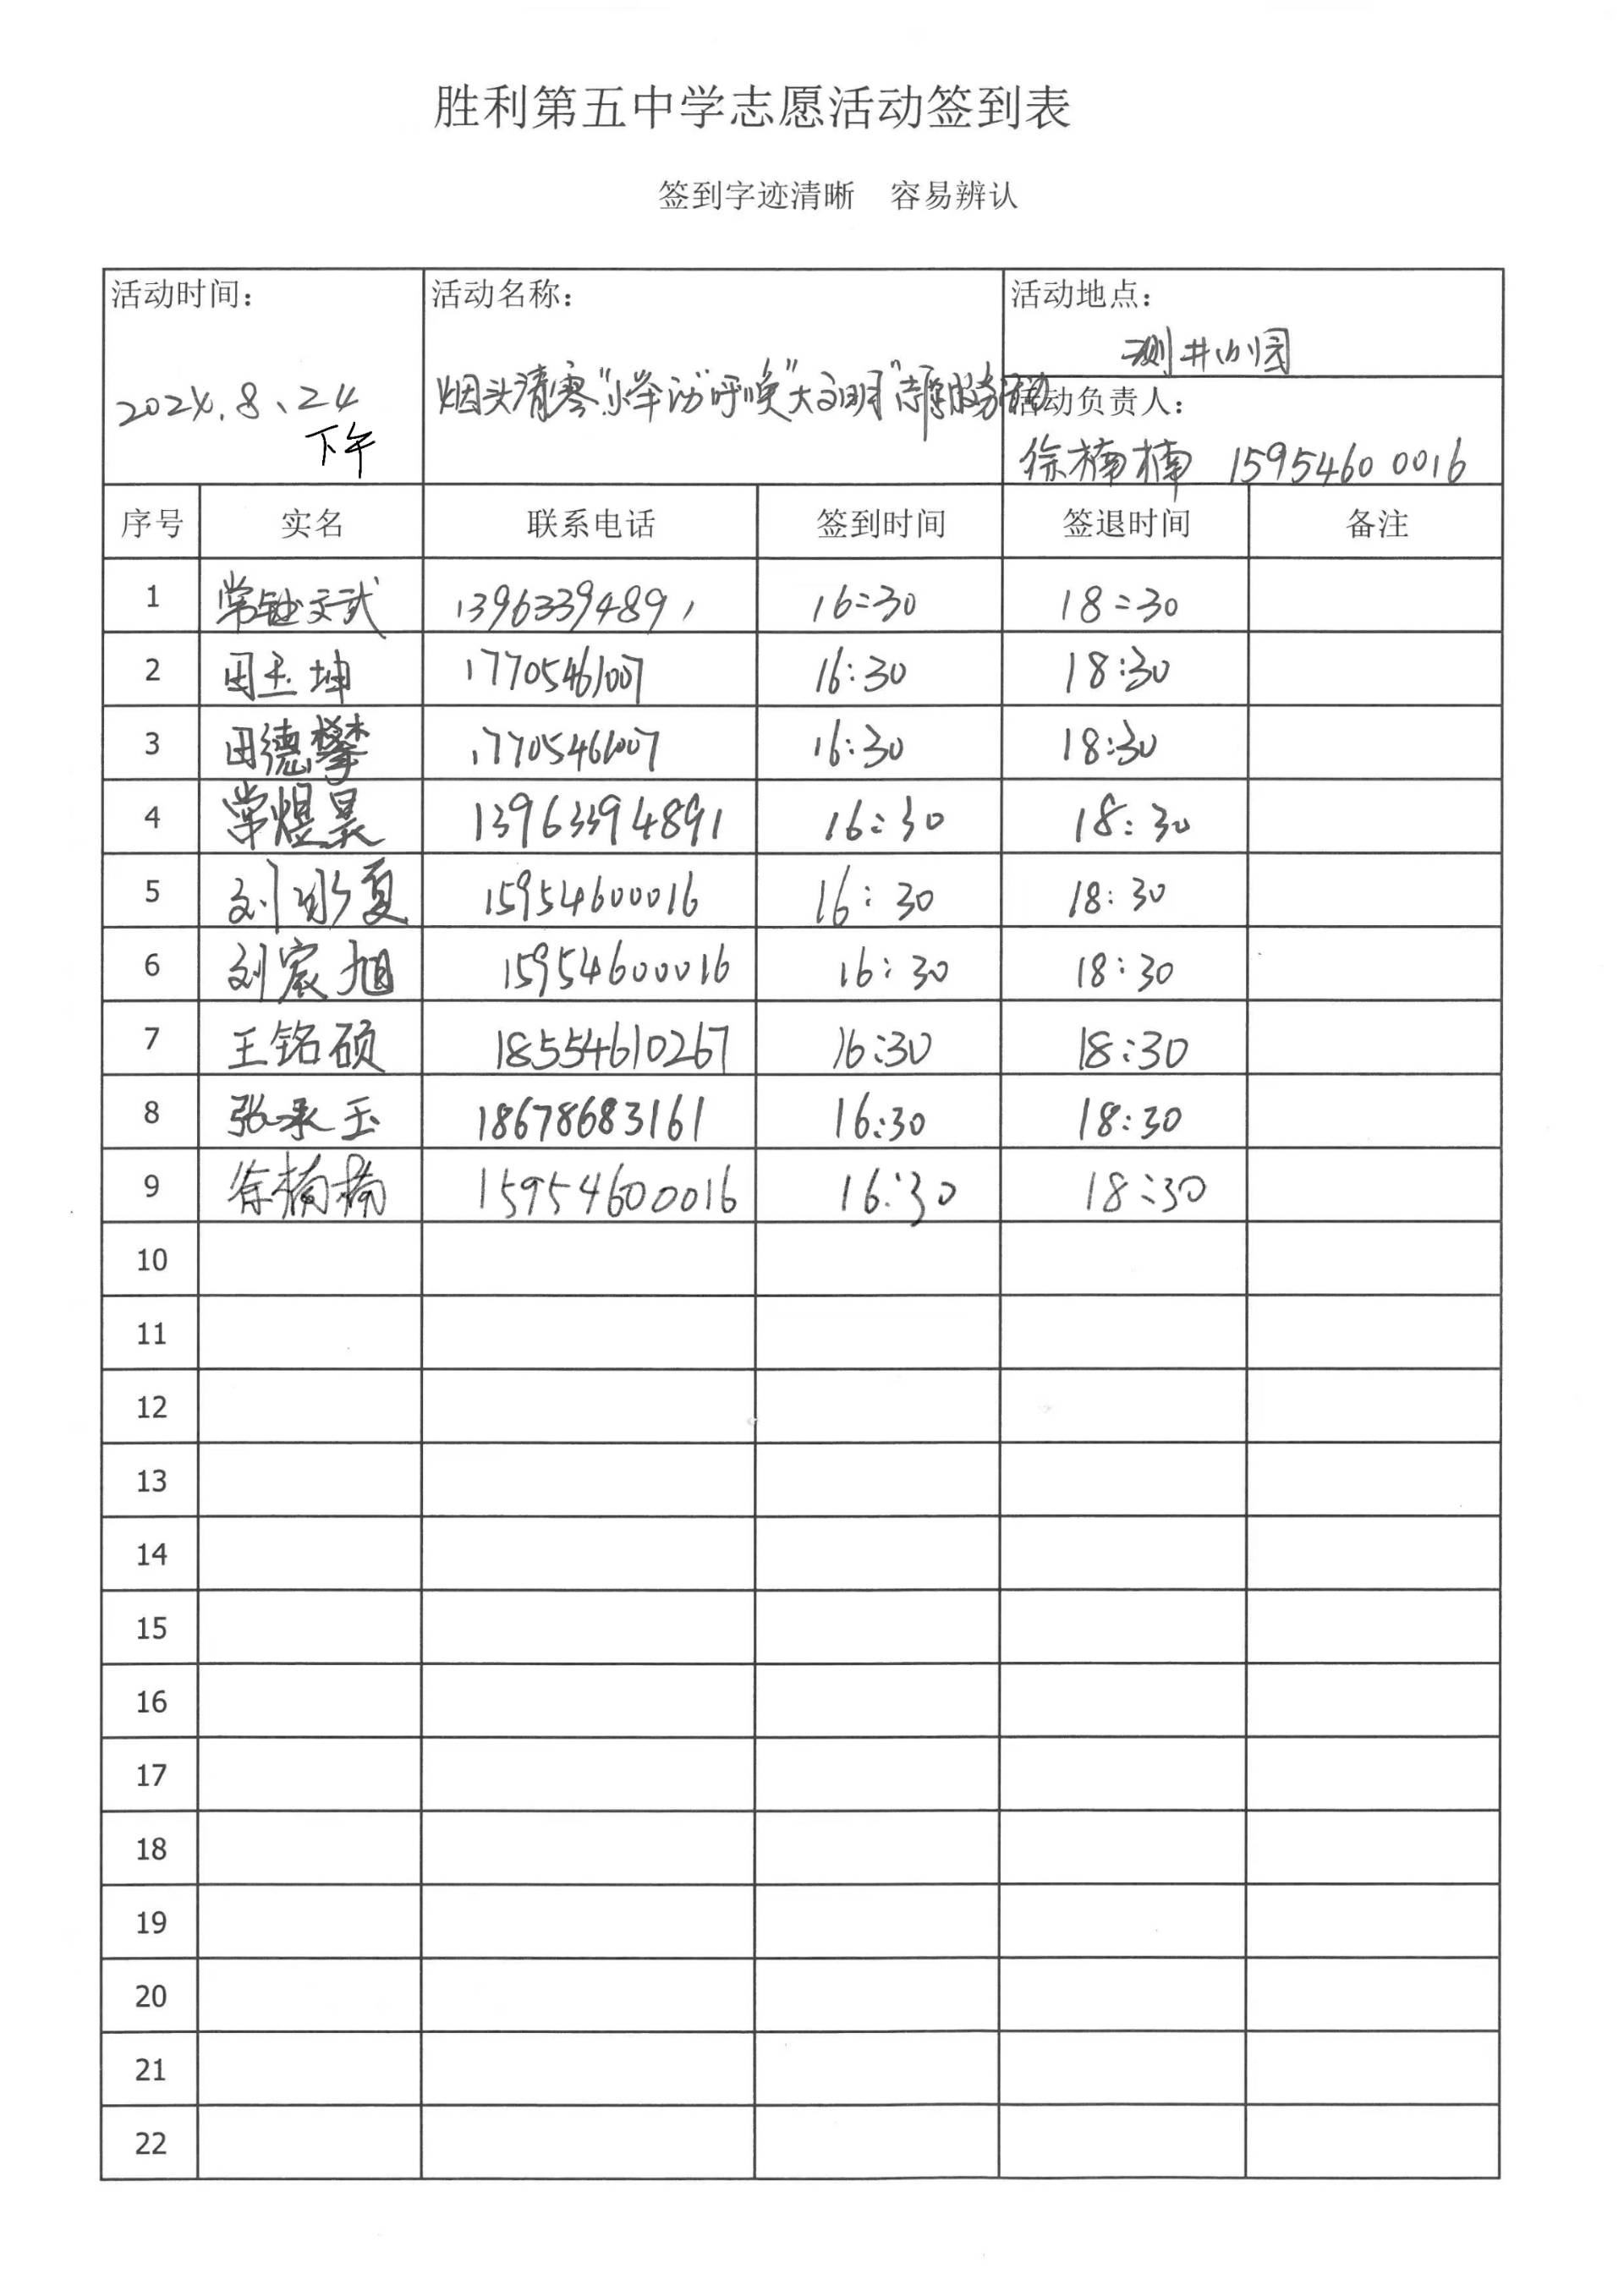 胜利第五中学志愿活动签到表
签到字迹清晰 容易辨认
活动时间： 活动名称： 活动地点：
测井小园
2024.8、24 烟头清零"小举动"呼唤"大文明"志愿服务活动 活动负责人：
下午 徐楠楠 15954600016
序号 实名 联系电话 签到时间 签退时间 备注
1 常 文武 13963394891 16:30 18:30
2 田玉坤 17705461007 16:30 18:30
3 田德攀 17705461007 16:30 18:30
4 常煜昊 13963394891 16:30 18:30
5 刘 夏 15954600016 16:30 18:30
6 刘宸旭 15954600016 16:30 18:30
7 王铭硕 18554610267 16:30 18:30
8 张承玉 18678683161 16:30 18:30
9 徐楠楠 15954600016 16:30 18:30
10
11
12
13
14
15
16
17
18
19
20
21
22